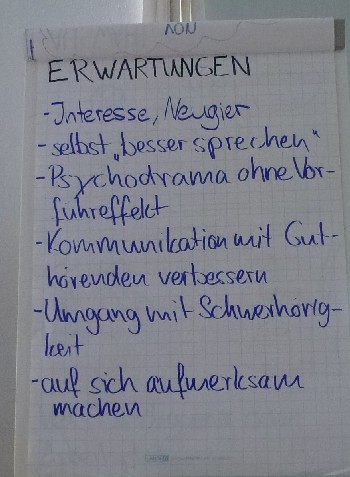 VON
ERWARTUNGEN
- Interesse, Neugier
- selbst „besser sprechen"
- Psychodrama ohne Vor-
führeffekt
- Kommunikation mit Gut-
hörenden verbessern
- Umgang mit Schwerhörig-
keit
- auf sich aufmerksam
machen